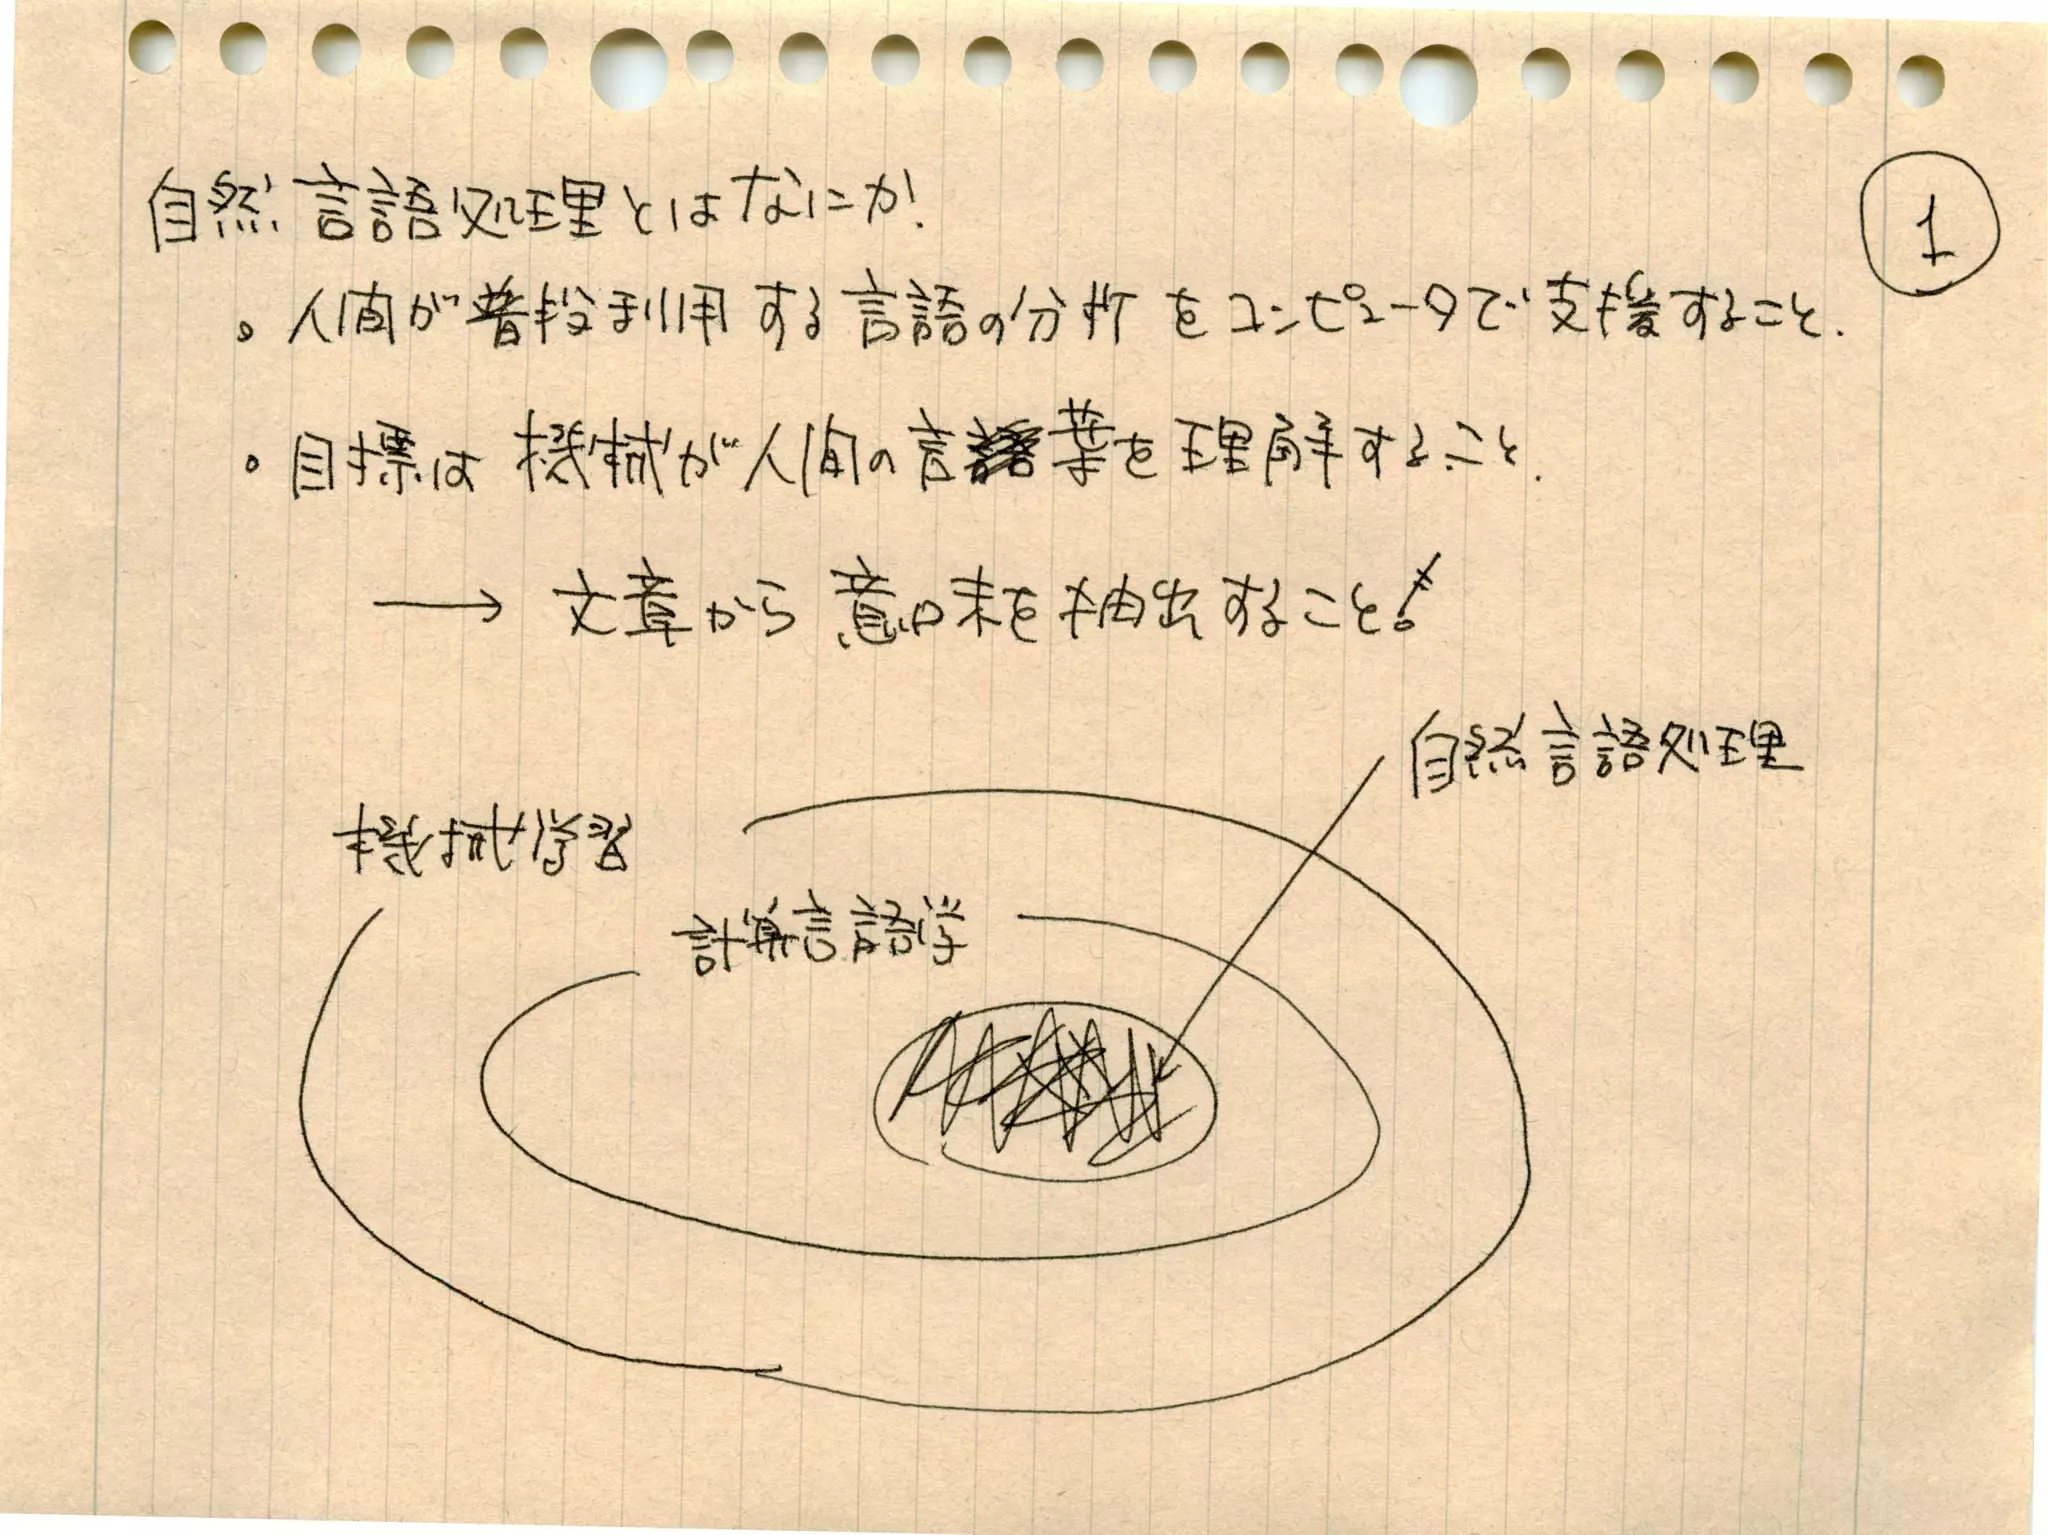 自然言語処理とはなにか!
1
。人間が普段利用する言語の分析をコンピュータで支援すること.
。目標は機械が人間の言葉を理解すること.
→ 文章から意味を抽出すること!
自然言語処理
機械学習
計算言語学